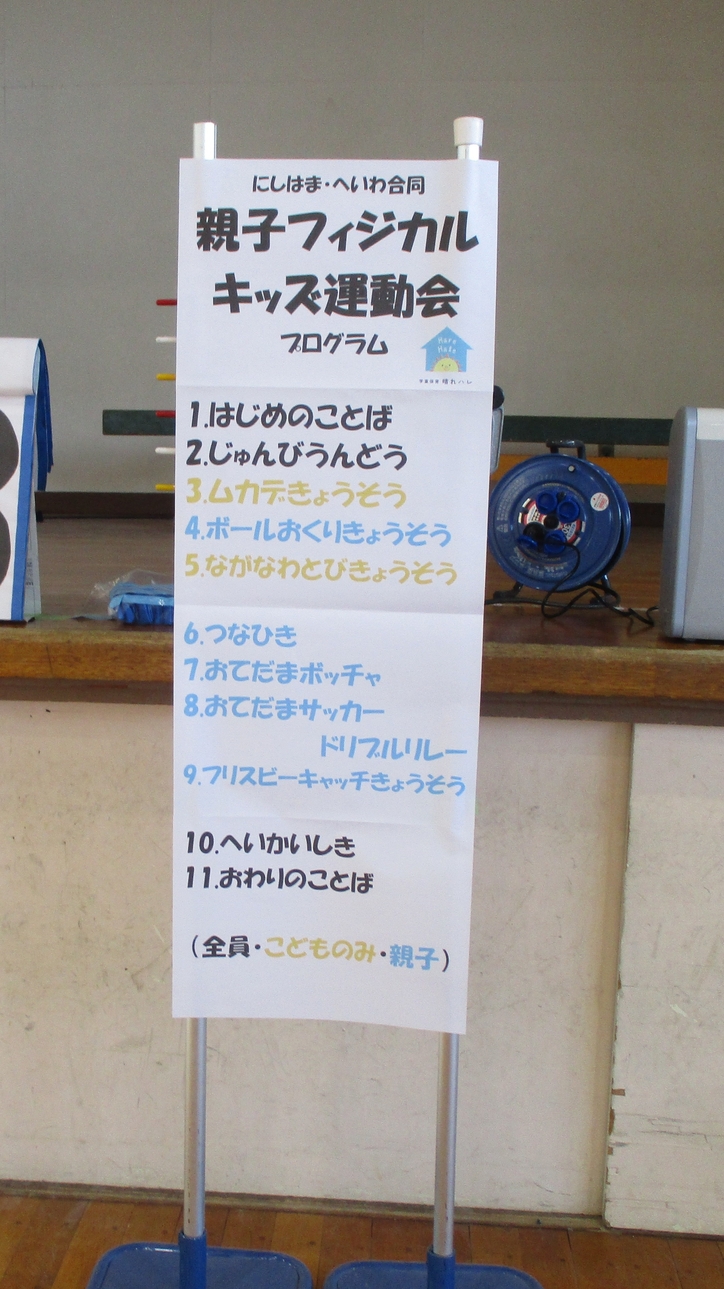 にしはま・へいわ合同
親子フィジカル
キッズ運動会
プログラム
Hare
Hare
1.はじめのことば
2.じゅんびうんどう
3.ムカデきょうそう
4.ボールおくりきょうそう
5.ながなわとびきょうそう
6.つなひき
7.おてだまボッチャ
8.おてだまサッカー
ドリブルリレー
9.フリスビーキャッチきょうそう
10.へいかいしき
11.おわりのことば
(全員・こどものみ・親子)